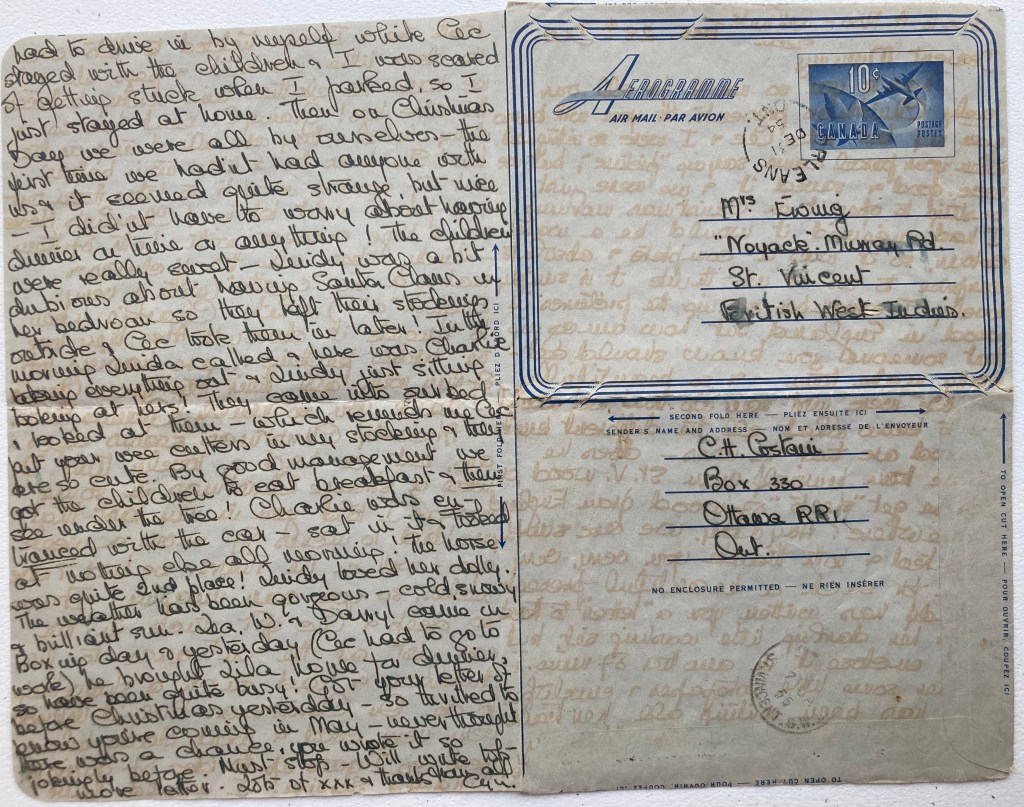 had to drive in by myself while Cec
stayed with the children & I was scared
of getting stuck when I parked, so I
just stayed at home. Then on Christmas
Day we were all by ourselves – the
first time we hadn't had anyone with
us & it seemed quite strange, but nice
– I did'nt have to worry about having
dinner on time or anything! The children
were really sweet – Lindy was a bit
dubious about having Santa Claus in
her bedroom so they left their stockings
outside & Cec took them in later! In the
morning Linda called & here was Charlie
taking everything out & Lindy just sitting
looking at hers! They came into our bed
& looked at them – which reminds me Cec
put your wee cutters in my stocking & they
are so cute. By good management we
got the children to eat breakfast & then
see under the tree! Charlie was en-
tranced with the car – sat in it & looked
at nothing else all morning! The horse
was quite 2nd place! Lindy loved her dolly.
The weather has been gorgeous – cold snowy
& brilliant sun. W. & Darryl came in
Boxing day & yesterday (Cec had to go to
work) he brought Lila home for dinner,
so have been quite busy! Got your letter of
before Christmas yesterday – so thrilled to
know you're coming in May – never thought
there was a chance, you wrote it so
jokingly before. Must stop – Will write
more letter. Lots of xxx & thanks from all
Cyn.
AEROGRAMME
AIR MAIL · PAR AVION
10¢
CANADA
POSTAGE
POSTES
ORLEANS
ONT.
DE 31
54
Mrs Ewing
"Noyack" Murray Rd.
St. Vincent
British West Indies.
FIRST FOLD HERE — PLIEZ D'ABORD ICI
SECOND FOLD HERE — PLIEZ ENSUITE ICI
SENDER'S NAME AND ADDRESS — NOM ET ADRESSE DE L'ENVOYEUR
C.H. Costain
Box 330
Ottawa RR1.
Ont.
NO ENCLOSURE PERMITTED — NE RIEN INSÉRER
TO OPEN CUT HERE — POUR OUVRIR, COUPEZ ICI
TO OPEN CUT HERE — POUR OUVRIR, COUPEZ ICI